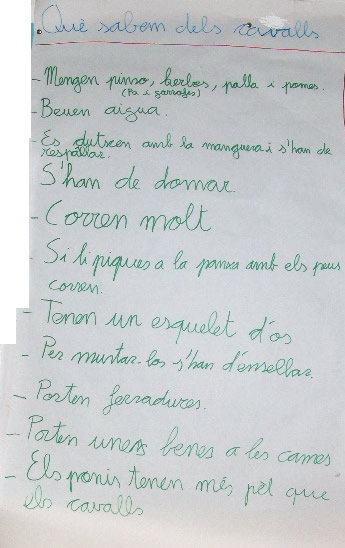 Què sabem dels cavalls
- Mengen pinso, herbes, palla i pomes.
(Pa i garrofes)
- Beuen aigua.
- Es dutxen amb la manguera i s'han de
respallar.
S'han de domar.
- Corren molt
- Si li piques a la panxa amb els peus
corren.
- Tenen un esquelet d'os
- Per muntar-los s'han d'ensellar.
- Porten ferradures.
- Porten unes benes a les cames
- Els ponis tenen més pèl que
els cavalls